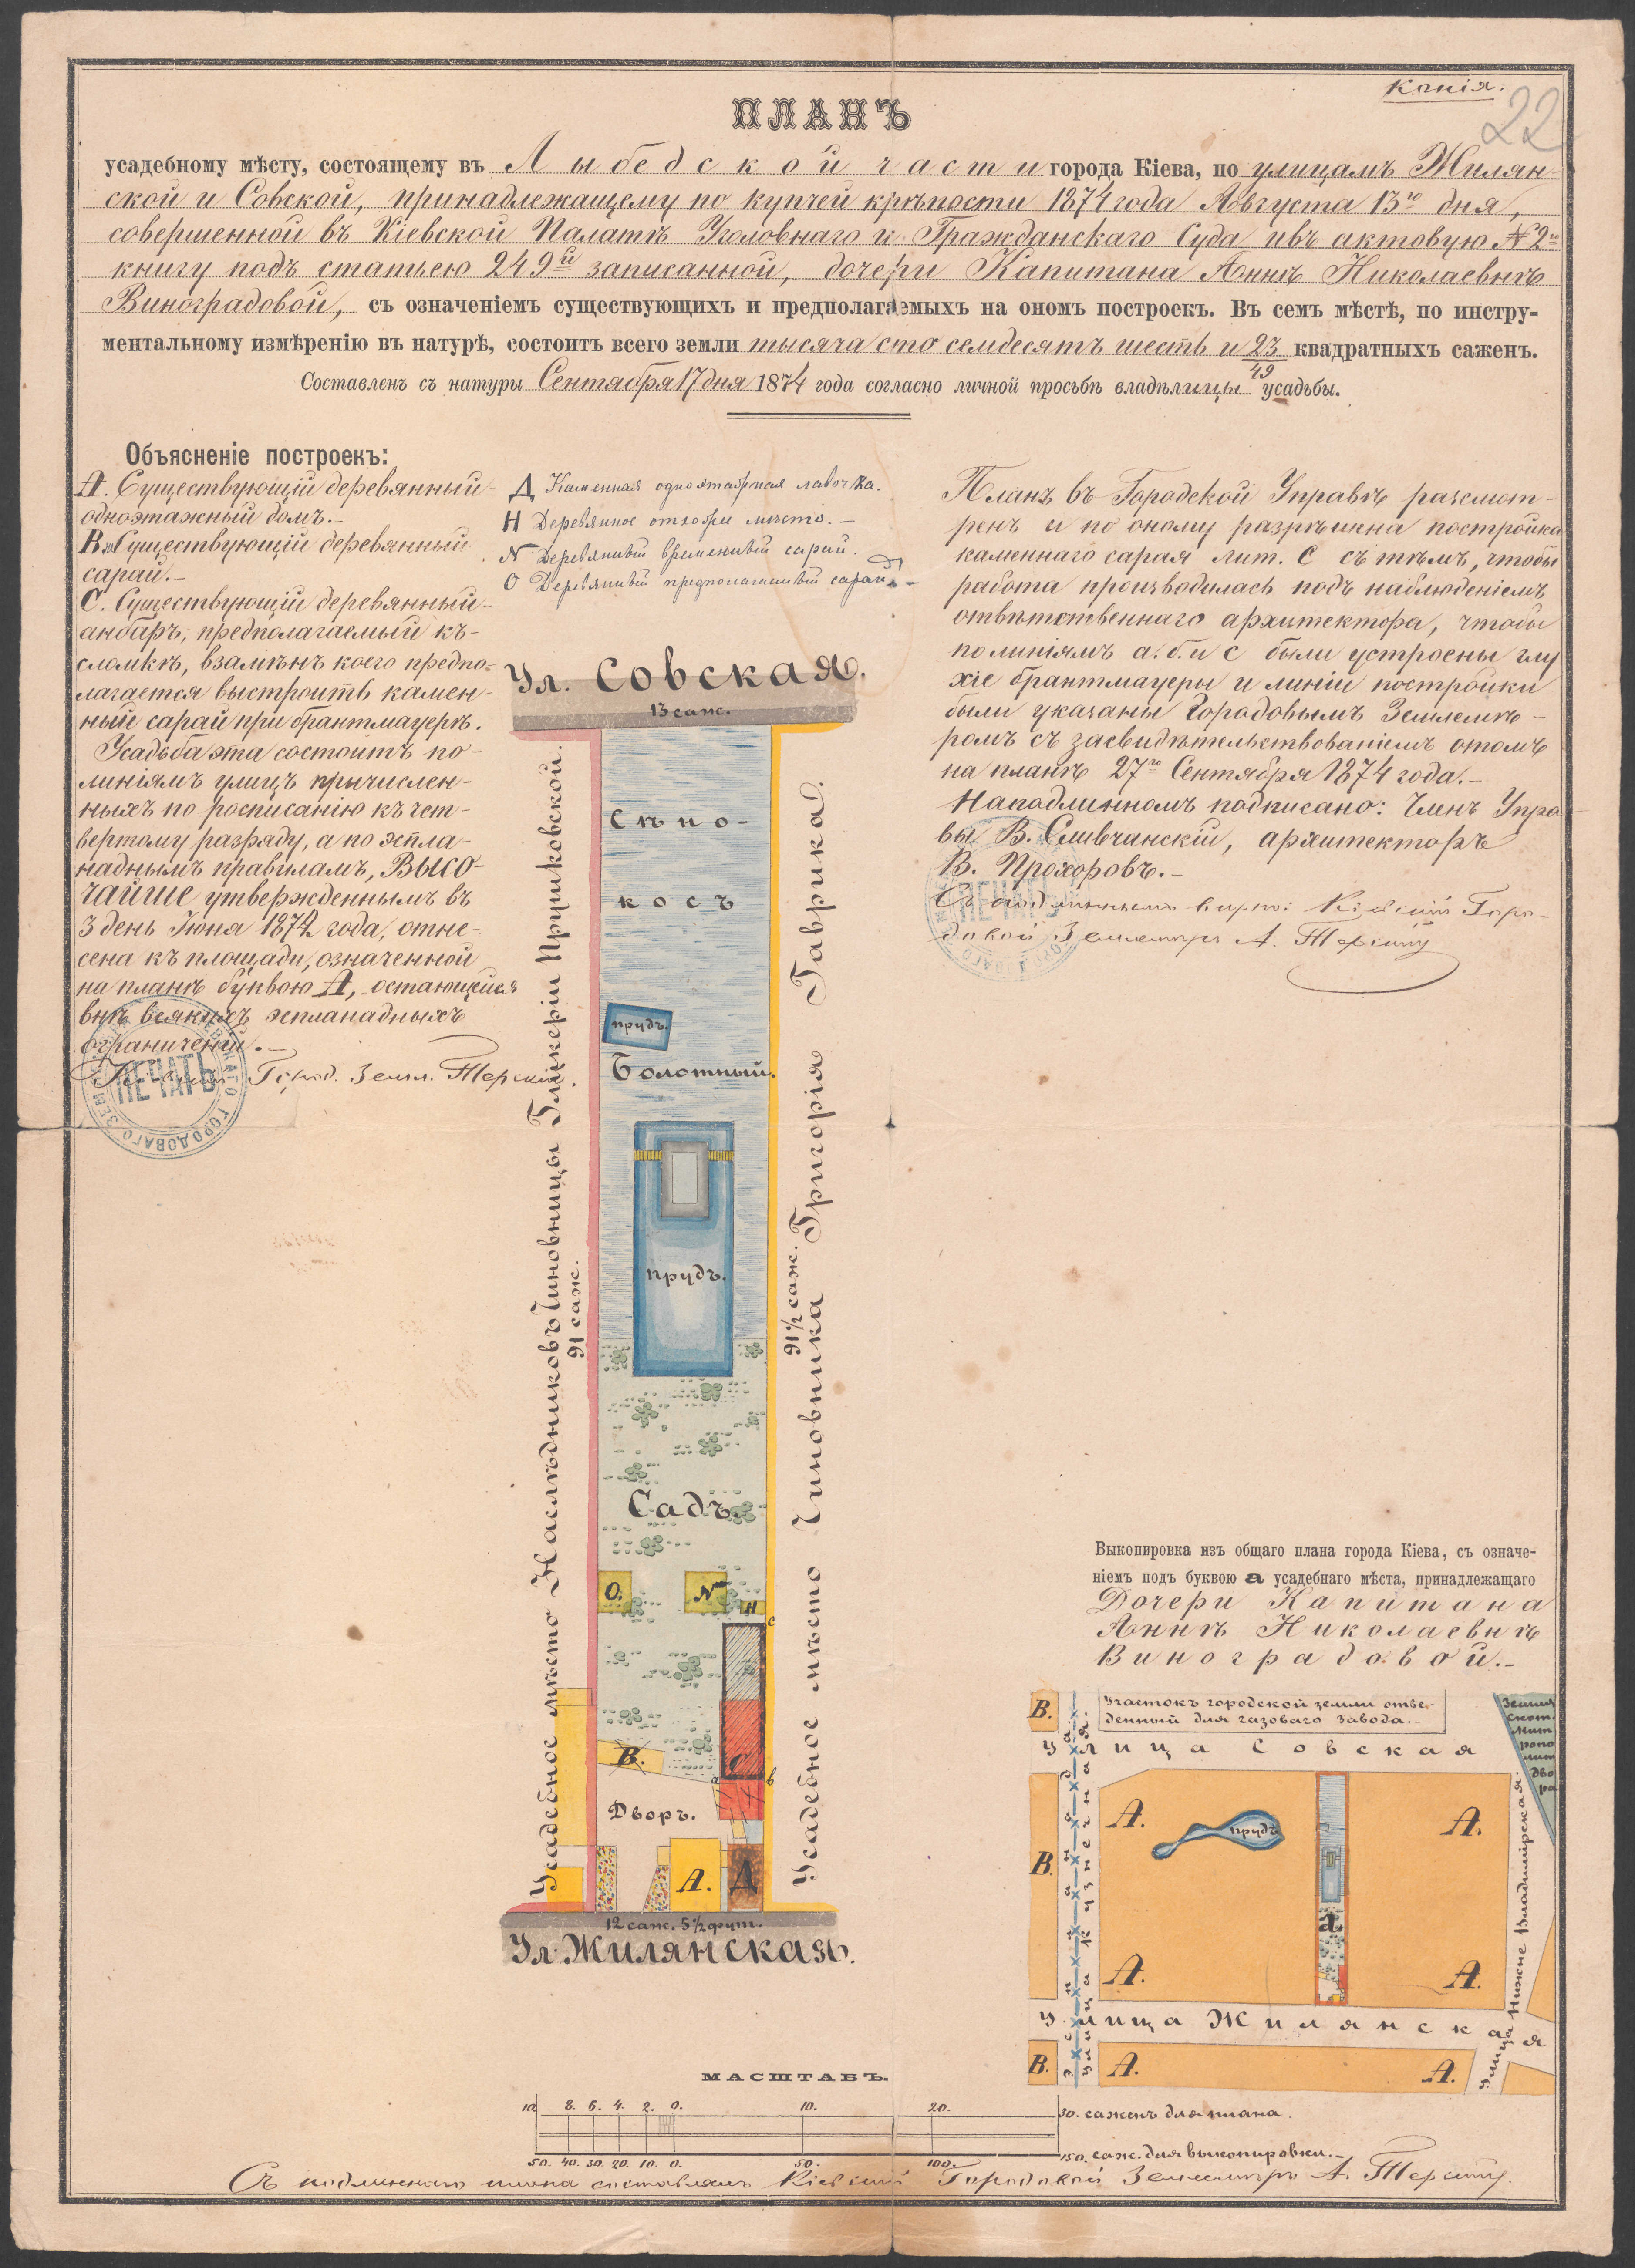 Копія.
22
ПЛАНЪ
усадебному мѣсту, состоящему въ Лыбедской части города Кіева, по улицамъ Жилян-
ской и Совской, принадлежащему по купчей крѣпости 1874 года Августа 13го дня,
совершенной въ Кіевской Палатѣ Уголовнаго и Гражданскаго Суда и въ актовую № 2ю
книгу подъ статьею 249й записанной, дочери Капитана Аннѣ Николаевнѣ
Виноградовой, съ означеніемъ существующихъ и предполагаемыхъ на ономъ построекъ. Въ семъ мѣстѣ, по инстру-
ментальному измѣренію въ натурѣ, состоитъ всего земли тысяча сто семдесятъ шесть и 23/49 квадратныхъ саженъ.
Составленъ съ натуры Сентября 17 дня 1874 года согласно личной просьбѣ владѣлицы усадьбы.
Объясненіе построекъ:
А. Существующій деревянный
одноэтажный домъ.-
В. Существующій деревянный
сарай.-
С. Существующій деревянный
анбаръ, предполагаемый къ-
сломкѣ, взамѣнъ коего предпо-
лагается выстроить камен-
ный сарай при брантмауерѣ.
Усадьба эта состоитъ по-
линіямъ улицъ причислен-
ныхъ по росписанію къ чет-
вертому разряду, а по эспла-
наднымъ правиламъ, ВЫСО-
ЧАЙШЕ утвержденнымъ въ
3 день Іюня 1872 года, отне-
сена къ площади, означенной
на планѣ буквою А, остающейся
внѣ всякихъ эспланадныхъ
ограниченій.-
Город. Земл. Терскій.
ПЕЧАТЬ
ГОРОДОВАГО
Д Каменная одноэтажная лавочка.
Н Деревянное отхожее мѣсто.-
N Деревянный временный сарай.
О Деревянный предполагаемый сарай.-
Планъ въ Городской Управѣ разсмот-
ренъ и по оному разрѣшена постройка
каменнаго сарая лит. С съ тѣмъ, чтобы
работа производилась подъ наблюденіемъ
отвѣтственнаго архитектора, чтобы
по линіямъ а. б. и с были устроены глу
хіе брантмауеры и линіи постройки
были указаны Городовымъ Землемѣ-
ромъ съ засвидѣтельствованіемъ о томъ
на планѣ 27го Сентября 1874 года.-
На подлинномъ подписано: Членъ Упра
вы В. Сливчанскій, архитекторъ
В. Прохоровъ.-
Съ подлиннымъ вѣрно: Кіевскій Горо-
довой Землемѣръ А. Терскій
ПЕЧАТЬ
Ул. Совская.
13 саж.
Сѣно-
косъ
прудъ.
Болотный.
прудъ.
Садъ.
О. N
Н
с
В. С
а в
Дворъ.
А. Д
12 саж. 5½ фут.
Ул. Жилянская.
Усадебное мѣсто Наслѣдниковъ Чиновницы Гликеріи Прушковской.
91 саж.
Усадебное мѣсто Чиновника Григорія Гаврика.
91½ саж.
Выкопировка изъ общаго плана города Кіева, съ означе-
ніемъ подъ буквою а усадебнаго мѣста, принадлежащаго
Дочери Капитана
Аннѣ Николаевнѣ
Виноградовой.-
В.
Участокъ городской земли отве-
денный для газоваго завода.-
Земля
скот.
Мит
ропо
лит
дво
ра
Улица Совская
А. А.
прудъ
В.
а
А. А.
Улица Кузнечная
Улица Нижне Владимірская.
Улица Жилянская
В. А. А.
МАСШТАБЪ.
10 8. 6. 4. 2. 0. 10. 20. 30. саженъ для плана.
50. 40. 30. 20. 10. 0. 50. 100. 150. саж. для выкопировки.-
Съ подлиннаго плана составлялъ Кіевскій Городовой Землемѣръ А. Терскій.